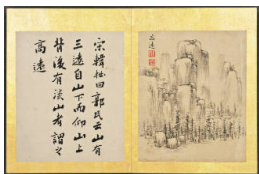 高遠
宋韓拙曰郭氏云山有
三遠自山下而仰山上
背後有淡山者謂之
高遠